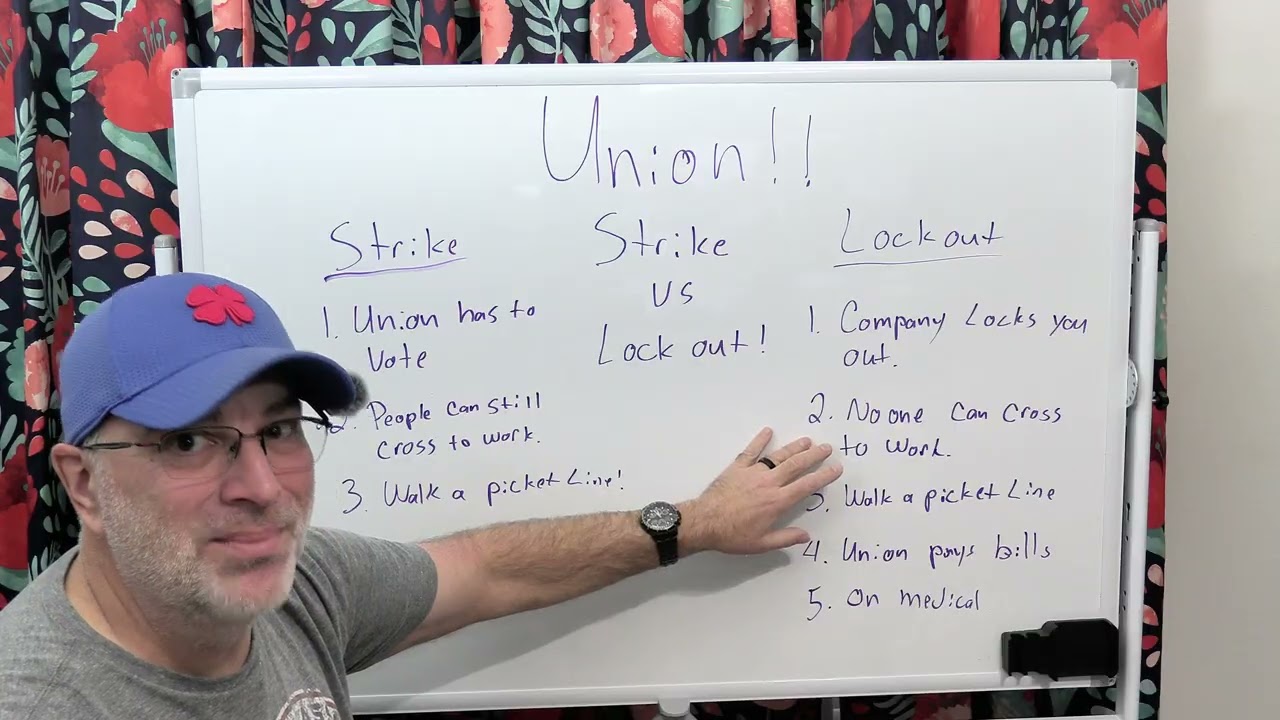 Union!!
Strike
1. Union has to
Vote
2. People can still
cross to work.
3. Walk a picket Line!
Strike
vs
Lock out!
Lockout
1. Company Locks you
out.
2. No one can cross
to work.
3. Walk a picket Line
4. Union pays bills
5. On medical